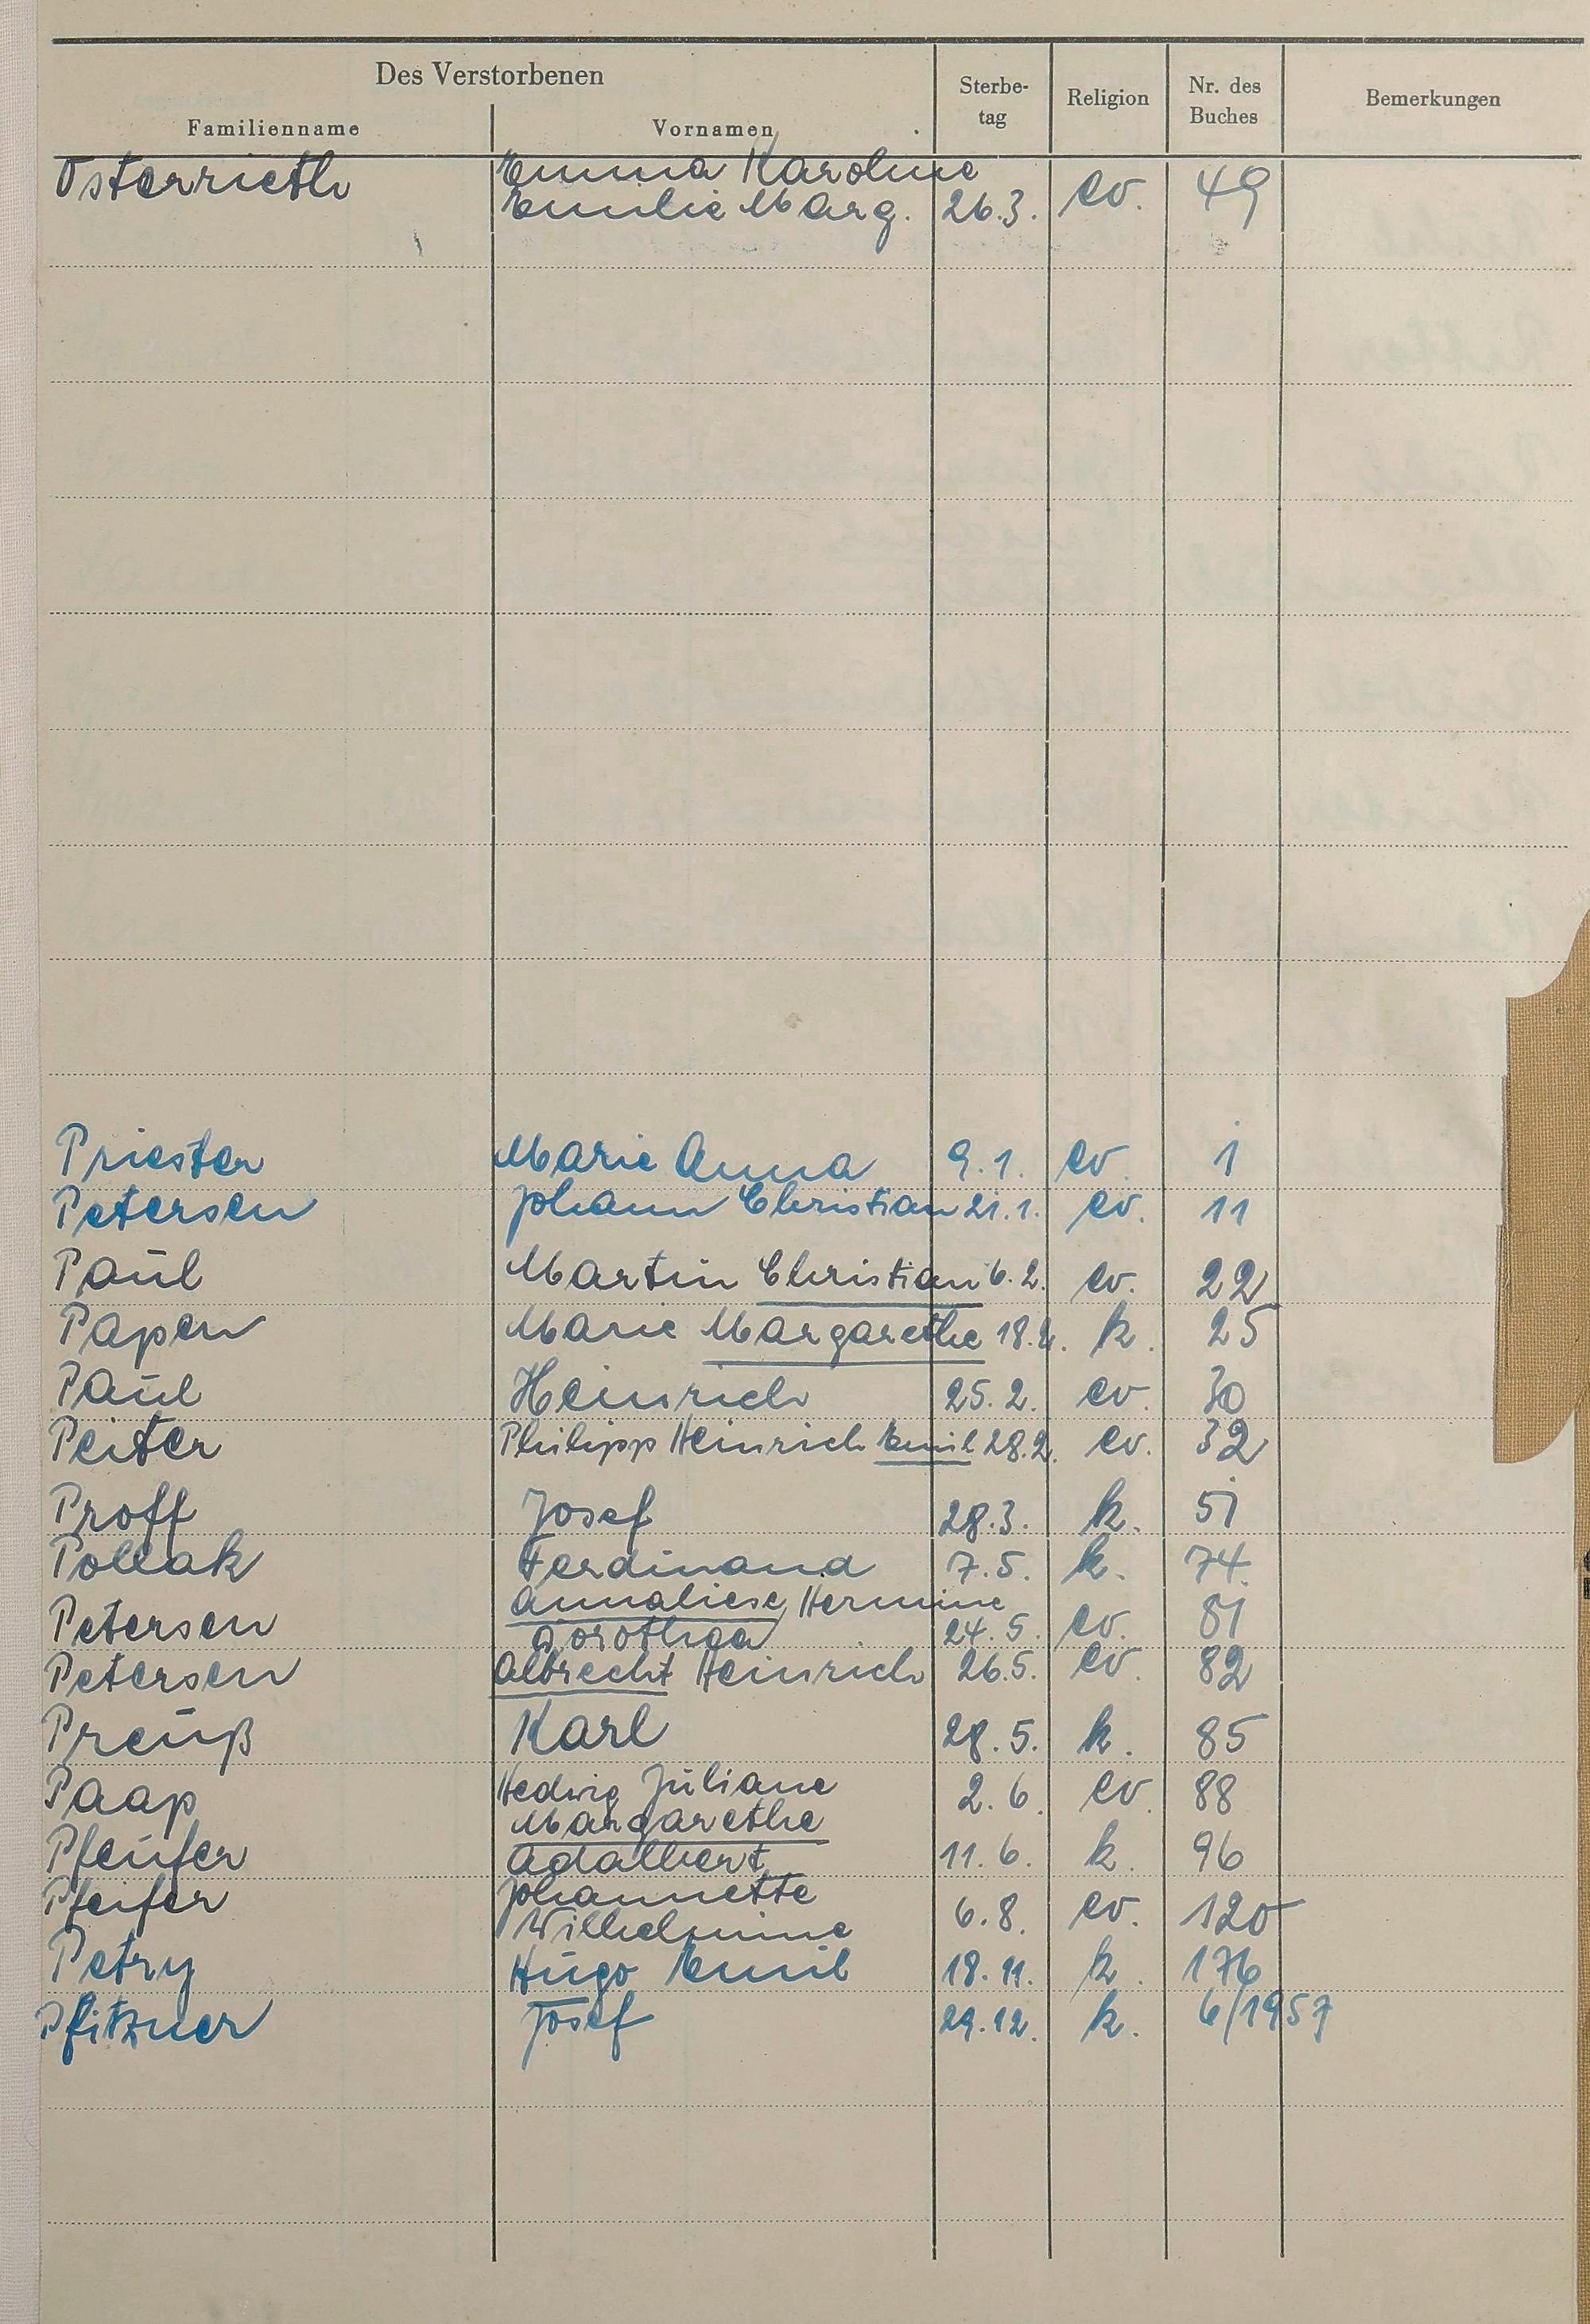 Des Verstorbenen
Familienname Vornamen Sterbe-tag Religion Nr. des Buches Bemerkungen
Osterrieth Emma Karoline
Emilie Marg. 26.3. ev. 49
Priester Marie Anna 9.1. ev. 1
Petersen Johann Christian 21.1. ev. 11
Paul Martin Christian 6.2. ev. 22
Papen Marie Margarethe 18.2. k. 25
Paul Heinrich 25.2. ev. 30
Peiter Philipp Heinrich Emil 28.2. ev. 32
Proff Josef 28.3. k. 51
Pollak Ferdinand 7.5. k. 74
Petersen Annaliese Hermine
Dorothea 24.5. ev. 81
Petersen Albrecht Heinrich 26.5. ev. 82
Preuß Karl 28.5. k. 85
Paap Hedwig Juliane
Margarethe 2.6. ev. 88
Pfeufer Adalbert 11.6. k. 96
Pfeifer Johannette
Wilhelmine 6.8. ev. 120
Petry Hugo Emil 18.11. k. 176
Pfitzner Josef 29.12. k. 6/1957